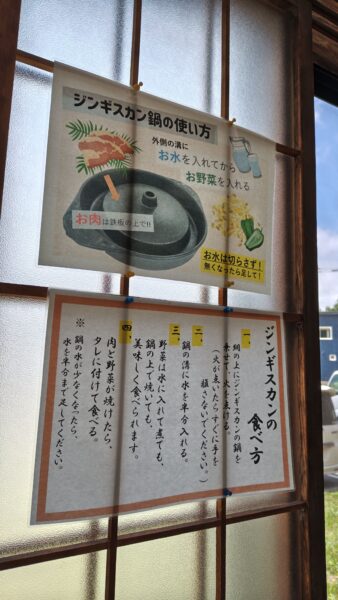 ジンギスカン鍋の使い方
外側の溝に
お水を入れてから
お野菜を入れる
お肉は鉄板の上で!!
お水は切らさず!
無くなったら足して!
ジンギスカンの
食べ方
一、
網の上にジンギスカンの鍋を
乗せて、火を点ける。
(火が点いたらすぐに手を
離さないでください。)
二、
鍋の溝に水を半分入れる。
三、
野菜は水に入れて煮ても、
鍋の上で焼いても、
美味しく食べられます。
四、
肉と野菜が焼けたら、
タレに付けて食べる。
※
鍋の水が少なくなったら、
水を半分まで足してください。